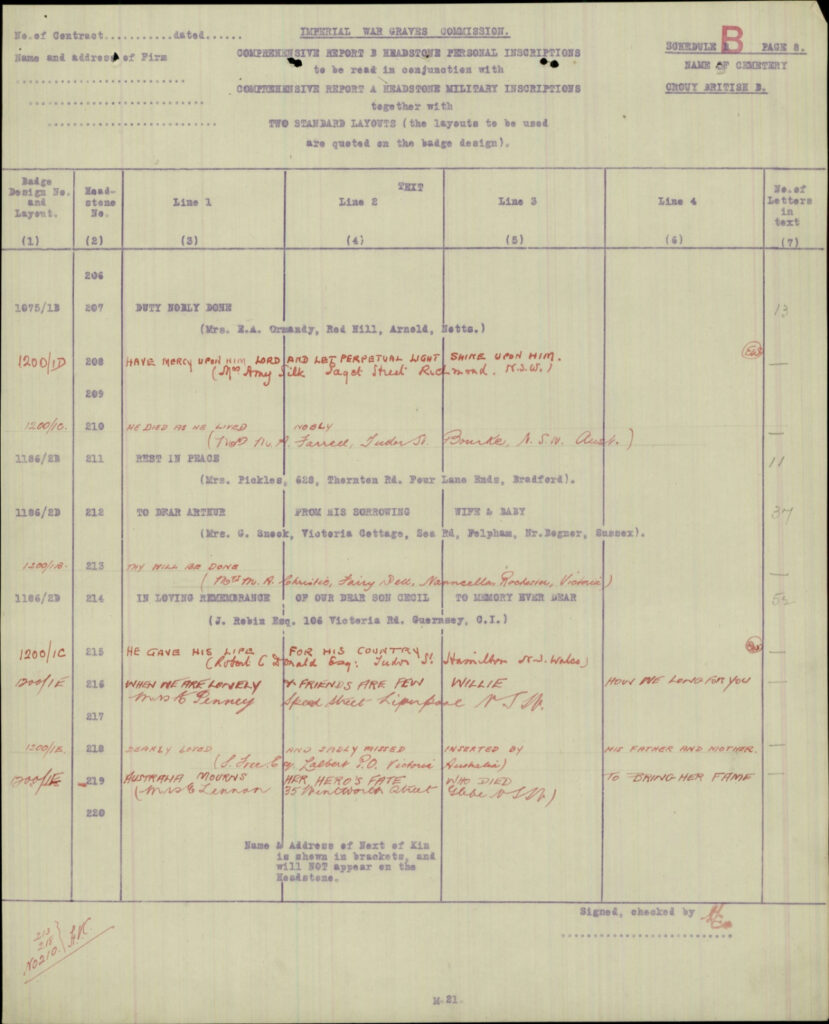 No. of Contract............dated......
IMPERIAL WAR GRAVES COMMISSION.
Name and address of Firm
COMPREHENSIVE REPORT B HEADSTONE PERSONAL INSCRIPTIONS
SCHEDULE B PAGE 8.
to be read in conjunction with
NAME OF CEMETERY
COMPREHENSIVE REPORT A HEADSTONE MILITARY INSCRIPTIONS
CROUY BRITISH B.
together with
TWO STANDARD LAYOUTS (the layouts to be used
are quoted on the badge design).
Badge Design No. and Layout. Head-stone No. TEXT No. of Letters in text
Line 1 Line 2 Line 3 Line 4
(1) (2) (3) (4) (5) (6) (7)
206
1075/1B 207 DUTY NOBLY DONE 13
(Mrs. E.A. Ormandy, Red Hill, Arnold, Notts.)
1200/1D 208 HAVE MERCY UPON HIM LORD AND LET PERPETUAL LIGHT SHINE UPON HIM. —
(Mrs Amy Silk Paget Street Richmond. N.S.W.)
209
1200/1C. 210 HE DIED AS HE LIVED NOBLY —
(Mrs M. A. Farrell, Tudor St. Bourke, N.S.W. Aust.)
1186/2B 211 REST IN PEACE 11
(Mrs. Pickles, 628, Thornton Rd. Four Lane Ends, Bradford).
1186/2D 212 TO DEAR ARTHUR FROM HIS SORROWING WIFE & BABY 37
(Mrs. G. Snook, Victoria Cottage, Sea Rd, Felpham, Nr. Bognor, Sussex).
1200/1B. 213 THY WILL BE DONE —
(Mrs M. A. Christie, Fairy Dell, Nanneella, Rochester, Victoria)
1186/2D 214 IN LOVING REMEMBRANCE OF OUR DEAR SON CECIL TO MEMORY EVER DEAR
(J. Robin Esq. 106 Victoria Rd. Guernsey, C.I.)
1200/1C 215 HE GAVE HIS LIFE FOR HIS COUNTRY —
(Robert C Donald Esq: Tudor St. Hamilton N.S. Wales)
1200/1E 216 WHEN WE ARE LONELY & FRIENDS ARE FEW WILLIE HOW WE LONG FOR YOU —
Mrs E Penney Speed Street Liverpool N S W.
217
1200/1E. 218 DEARLY LOVED AND SADLY MISSED INSERTED BY HIS FATHER AND MOTHER. —
(S. Free Esq. Lalbert P.O. Victoria Australia)
1200/1E 219 AUSTRALIA MOURNS HER HERO'S FATE WHO DIED TO BRING HER FAME —
(Mrs E Lennon 35 Wentworth Street Glebe N S W)
220
Name & Address of Next of Kin
is shown in brackets, and
will NOT appear on the
Headstone.
Signed, checked by
213
218
No 210.
M.21.